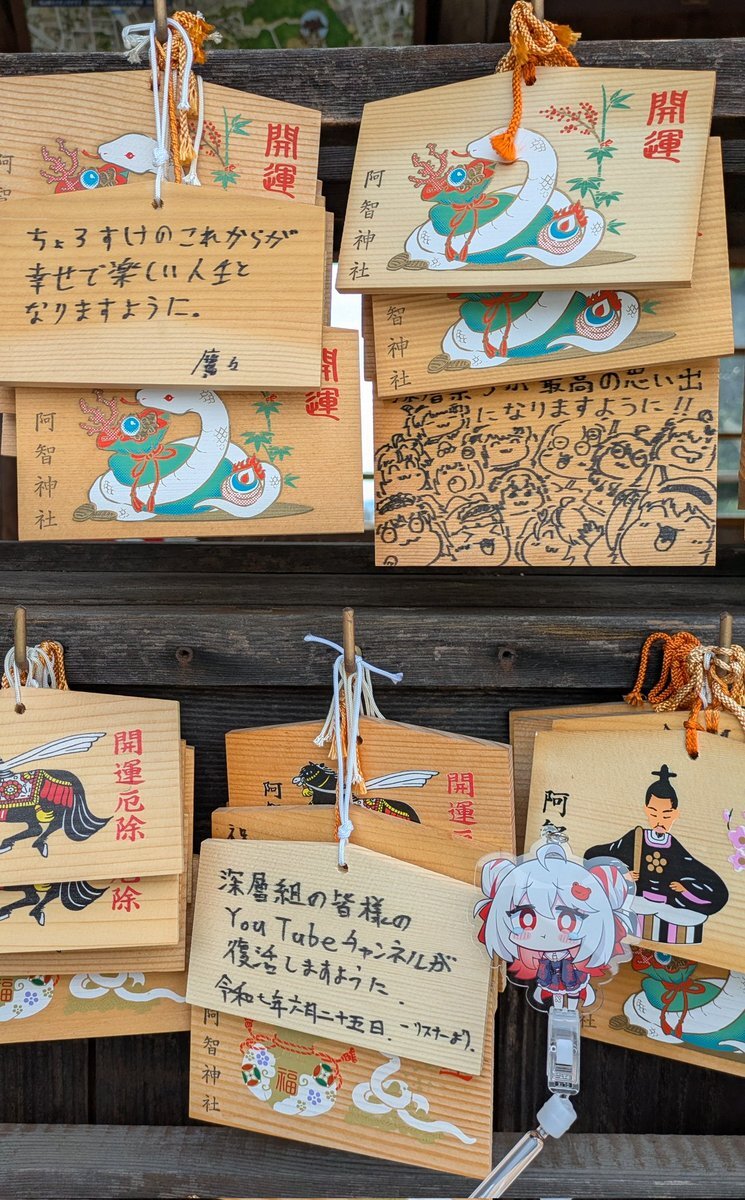 開運
阿
ちょろすけのこれからが
幸せで楽しい人生と
なりますように。
開運
阿智神社
開運
阿智神社
智神社
最高の思い出
になりますように!!
開運厄除
除
阿
開運
深層組の皆様の
YouTubeチャンネルが
復活しますように.
令和七年六月二十五日. 一リスナーより.
阿智神社
福
阿